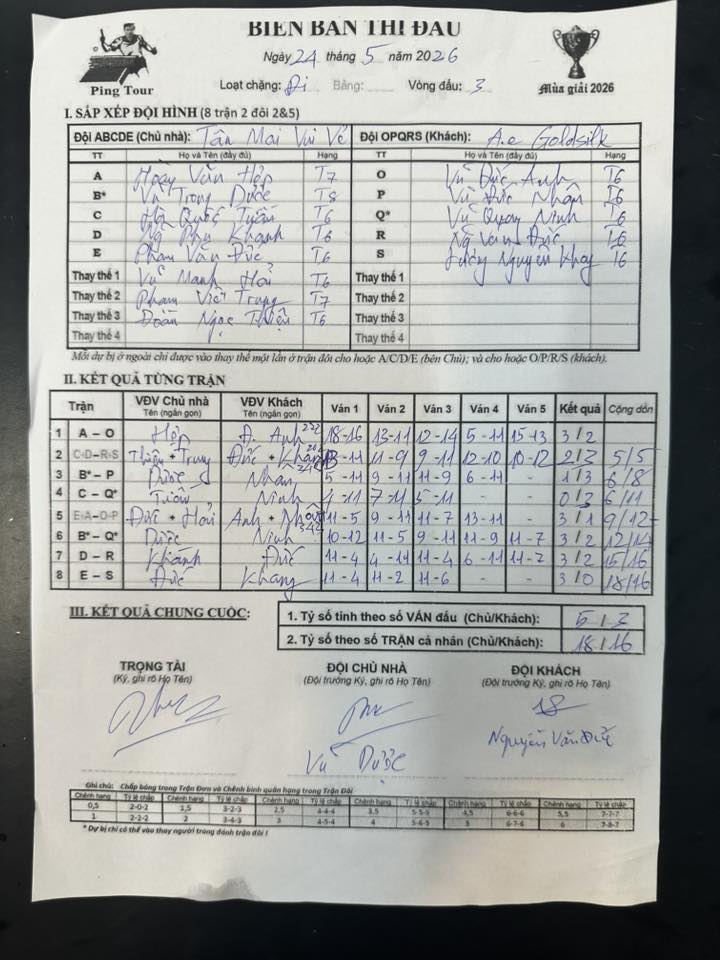 BIÊN BẢN THI ĐẤU
Ngày 24 tháng 5 năm 2026
Ping Tour
Loại chặng: Đi Bảng: Vòng đấu: 3
Mùa giải 2026
I. SẮP XẾP ĐỘI HÌNH (8 trận 2 đôi 2&5)
Đội ABCDE (Chủ nhà): Tân Mai Vui Vẻ Đội OPQRS (Khách): A.e Goldsilk
TT Họ và Tên (đầy đủ) Hạng TT Họ và Tên (đầy đủ) Hạng
A Văn Hợp T7 O Vũ Đức Anh T6
B* Vũ Trọng Dược T8 P Vũ Đức Nhân T6
C Quốc Tuấn T6 Q* Vũ Quang Ninh T6
D Ng Phú Khánh T6 R Ng Văn Đức T6
E Phạm Văn Đức T6 S Nguyên T6
Thay thế 1 Vũ Mạnh Hải T6 Thay thế 1
Thay thế 2 Phạm Viết Trung T7 Thay thế 2
Thay thế 3 Đoàn Ngọc Thiện T6 Thay thế 3
Thay thế 4 Thay thế 4
Mỗi dự bị ở ngoài chỉ được vào thay thế một lần ở trận đôi cho hoặc A/C/D/E (bên Chủ); và cho hoặc O/P/R/S (khách).
II. KẾT QUẢ TỪNG TRẬN
Trận VĐV Chủ nhà Tên (ngắn gọn) VĐV Khách Tên (ngắn gọn) Ván 1 Ván 2 Ván 3 Ván 4 Ván 5 Kết quả Cộng dồn
1 A – O Hợp Đ. Anh 18-16 13-11 12-14 5-11 15-13 3/2
2 C-D–R-S Thiện + Trung Đức + 11-9 9-11 12-10 10-12 2/3 5/5
3 B* – P Dược Nhân 5-11 11-9 11-9 6-11 - 1/3 6/8
4 C – Q* Tuấn Ninh 4-11 7-11 5-11 - - 0/3 6/11
5 E-A–O-P Đức + Hải Anh + Nhân 11-5 9-11 11-7 13-11 - 3/1 9/12
6 B* – Q* Dược Ninh 10-12 11-5 9-11 11-9 11-7 3/2 12/14
7 D – R Khánh Đức 11-4 4-11 11-4 6-11 11-7 3/2 15/16
8 E – S Đức Khang 11-4 11-2 11-6 - - 3/0 18/16
III. KẾT QUẢ CHUNG CUỘC:
1. Tỷ số tính theo số VÁN đấu (Chủ/Khách): 5/3
2. Tỷ số theo số TRẬN cá nhân (Chủ/Khách): 18/16
TRỌNG TÀI ĐỘI CHỦ NHÀ ĐỘI KHÁCH
(Ký, ghi rõ Họ Tên) (Đội trưởng Ký, ghi rõ Họ Tên) (Đội trưởng Ký, ghi rõ Họ Tên)
Vũ Dược
Nguyễn Văn Đức
Ghi chú: Chấp bóng trong Trận Đơn và Chênh bình quân hạng trong Trận Đôi
Chênh hạng Tỷ lệ chấp Chênh hạng Tỷ lệ chấp Chênh hạng Tỷ lệ chấp Chênh hạng Tỷ lệ chấp Chênh hạng Tỷ lệ chấp Chênh hạng Tỷ lệ chấp
0,5 2-0-2 1,5 3-2-3 2,5 4-4-4 3,5 5-5-5 4,5 6-6-6 5,5 7-7-7
1 2-2-2 2 3-4-3 3 4-5-4 4 5-6-5 5 6-7-6 6 7-8-7
* Dự bị chỉ có thể vào thay người trong đánh trận đôi !